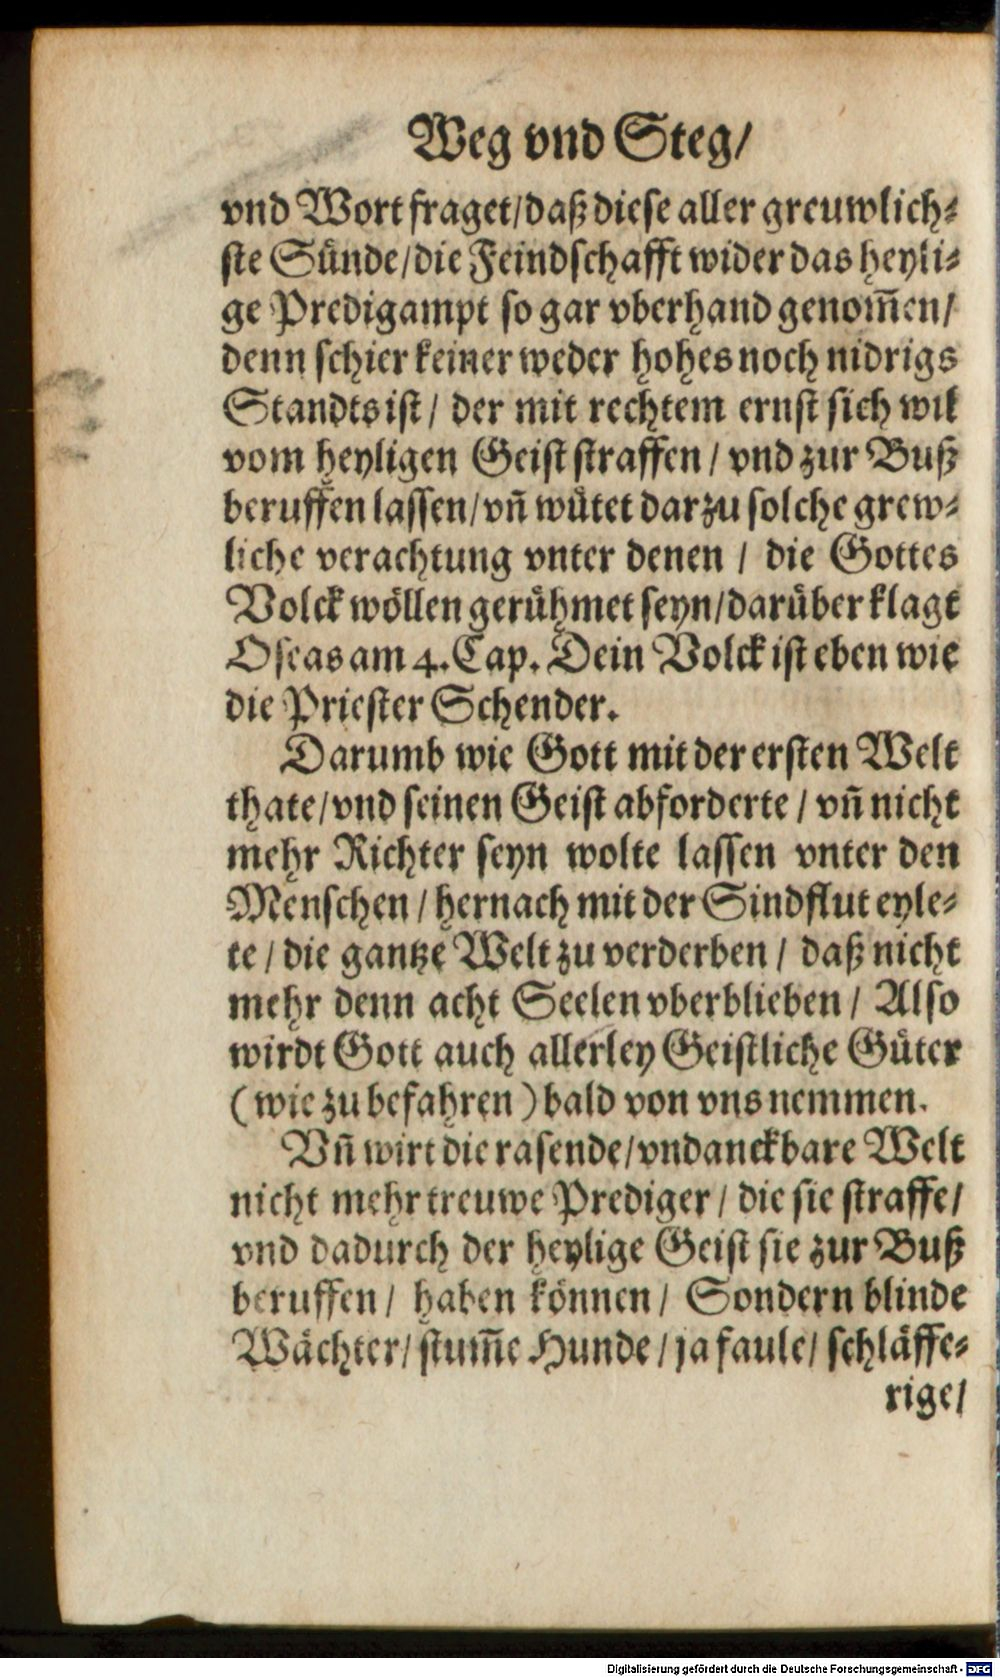 Weg vnd Steg/
vnd Wort fraget/daß diese aller greuwlich-
ste Sünde/die Feindschafft wider das heyli-
ge Predigampt so gar vberhand genom̃en/
denn schier keiner weder hohes noch nidrigs
Standts ist/ der mit rechtem ernst sich wil
vom heyligen Geist straffen/ vnd zur Buß
beruffen lassen/vñ wütet darzu solche grew-
liche verachtung vnter denen / die Gottes
Volck wöllen gerühmet seyn/darüber klagt
Oseas am 4. Cap. Dein Volck ist eben wie
die Priester Schender.
Darumb wie Gott mit der ersten Welt
thate/vnd seinen Geist abforderte / vñ nicht
mehr Richter seyn wolte lassen vnter den
Menschen / hernach mit der Sindflut eyle-
te / die gantze Welt zu verderben / daß nicht
mehr denn acht Seelen vberblieben / Also
wirdt Gott auch allerley Geistliche Güter
(wie zu befahren) bald von vns nemmen.
Vñ wirt die rasende/vndanckbare Welt
nicht mehr treuwe Prediger / die sie straffe/
vnd dadurch der heylige Geist sie zur Buß
beruffen/ haben können/ Sondern blinde
Wächter/ stum̃e Hunde / ja faule/ schläffe-
rige/
Digitalisierung gefördert durch die Deutsche Forschungsgemeinschaft - DFG